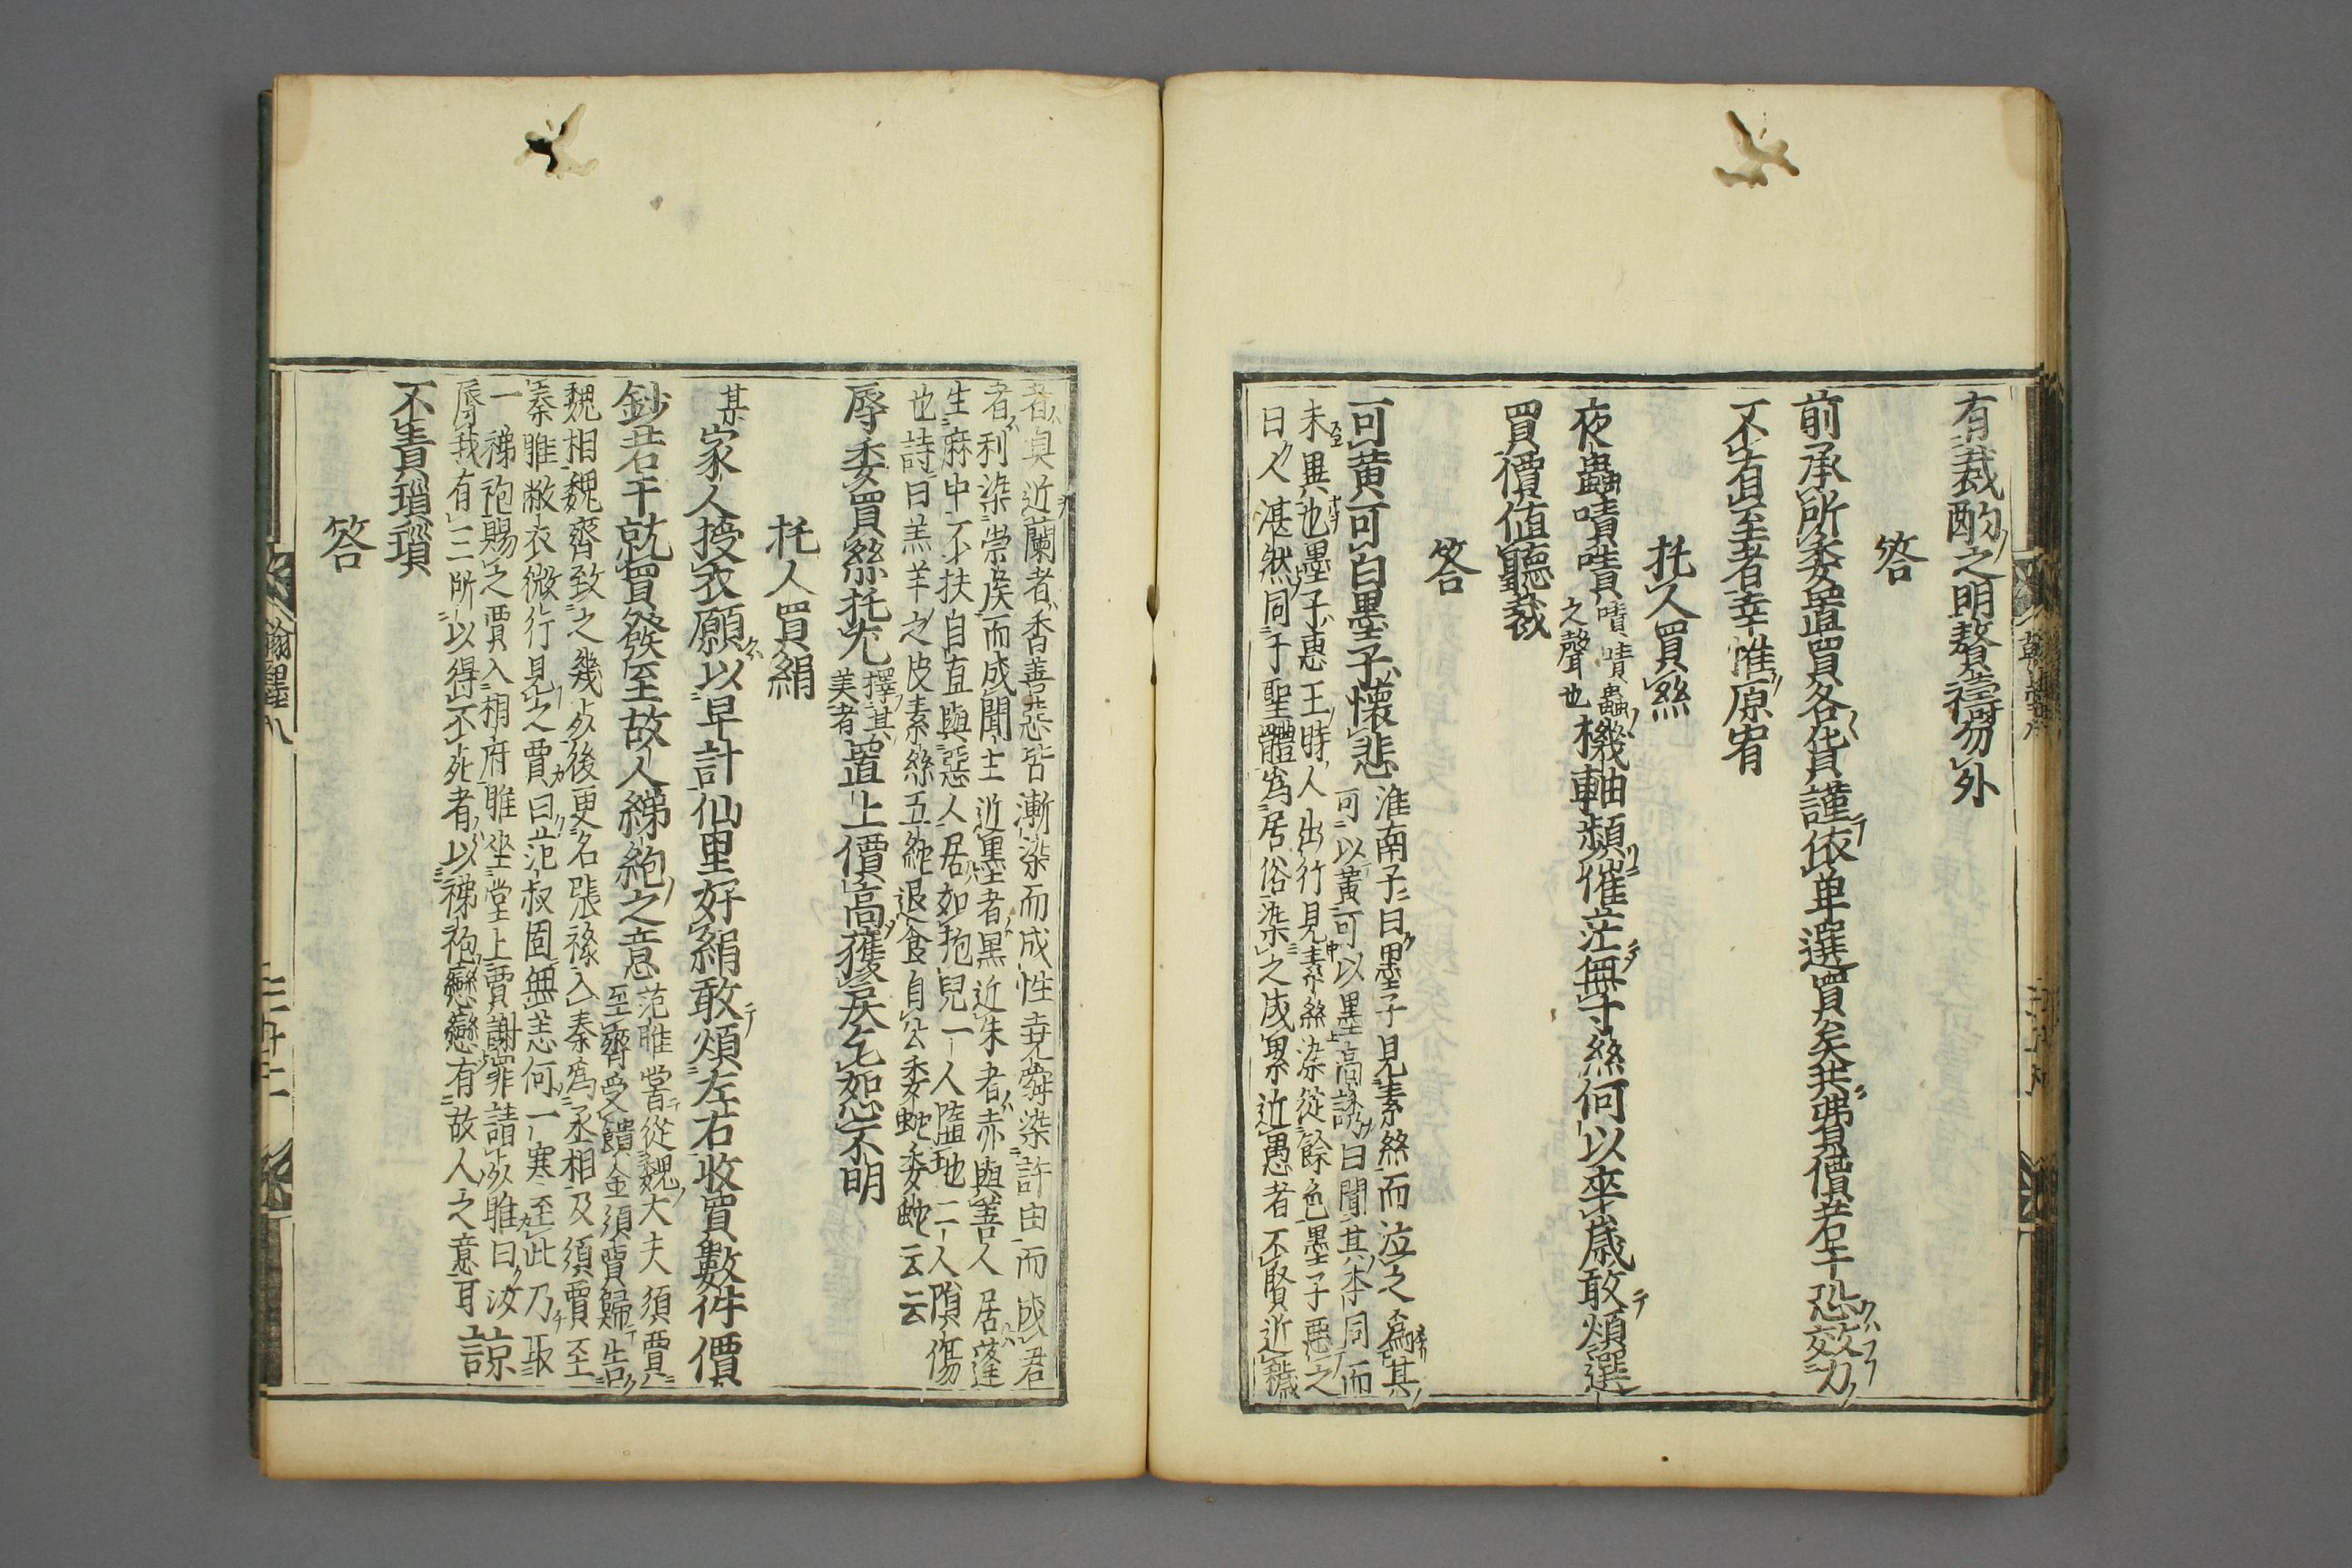 有裁酌之明聱䛑勿外
答
前承所委置買各貨謹依单選買矣共費價若干恐效力
不有至者幸惟原宥
托人買絲
夜蟲嘖嘖嘖嘖蟲之聲也機軸頻催茫無寸絲何以卒歲敢煩選
買價值聽裁
答
可黄可白墨子懷悲淮南子曰墨子見素絲而泣之為其
可以黄可以墨高誘曰聞其本同而
末異也墨子惠王時人出行見素絲染從餘色墨子悪之
曰人湛然同于聖體為居俗染之成累近愚者不賢近穢
者臭近蘭者香善悪皆漸染而成性尭舜染許由而成君
者利染崇侯而成聞主近墨者黒近朱者赤與善人居蓬
生麻中不扶自直與惡人居如抱兒一人墟地二人隕傷
也詩曰羔羊之皮素絲五紽退食自公委蛇委蛇云云
辱委買絲托尤擇其美者置上價高獲愆矣乞恕不明
托人買絹
某家人授衣願以早計仙里好絹敢煩左右收買數件價
鈔若干就買發至故人綈絶之意范睢嘗從魏大夫須賈
至齊受饋金須賈歸告
魏相魏齊致之幾死後更名張祿入秦為丞相及須賈至
秦睢敝衣微行見之賈曰范叔固無恙何一寒至此乃取
一綈袍賜之賈入相府睢坐堂上賈謝罪請死睢曰汝
辱我有三所以得不死者以綈袍戀戀有故人之意耳諒
不責瑣瑣
答
翰墨八
三十二